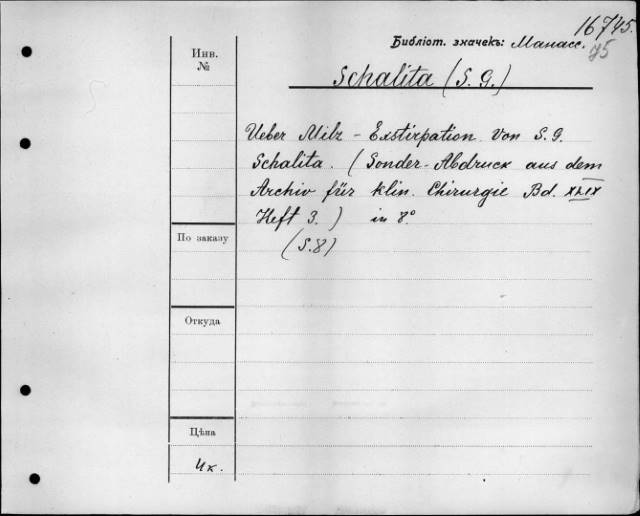 16745.
Библіот. значекъ: Манасс.
75
Инв.
№
Schalita (S. G.)
Ueber Milz - Exstirpation. Von S. G.
Schalita. (Sonder-Abdruck aus dem
Archiv für klin. Chirurgie Bd. XLIX
Heft 3.) in 8°
(S.8)
По заказу
Откуда
Цѣна
4к.